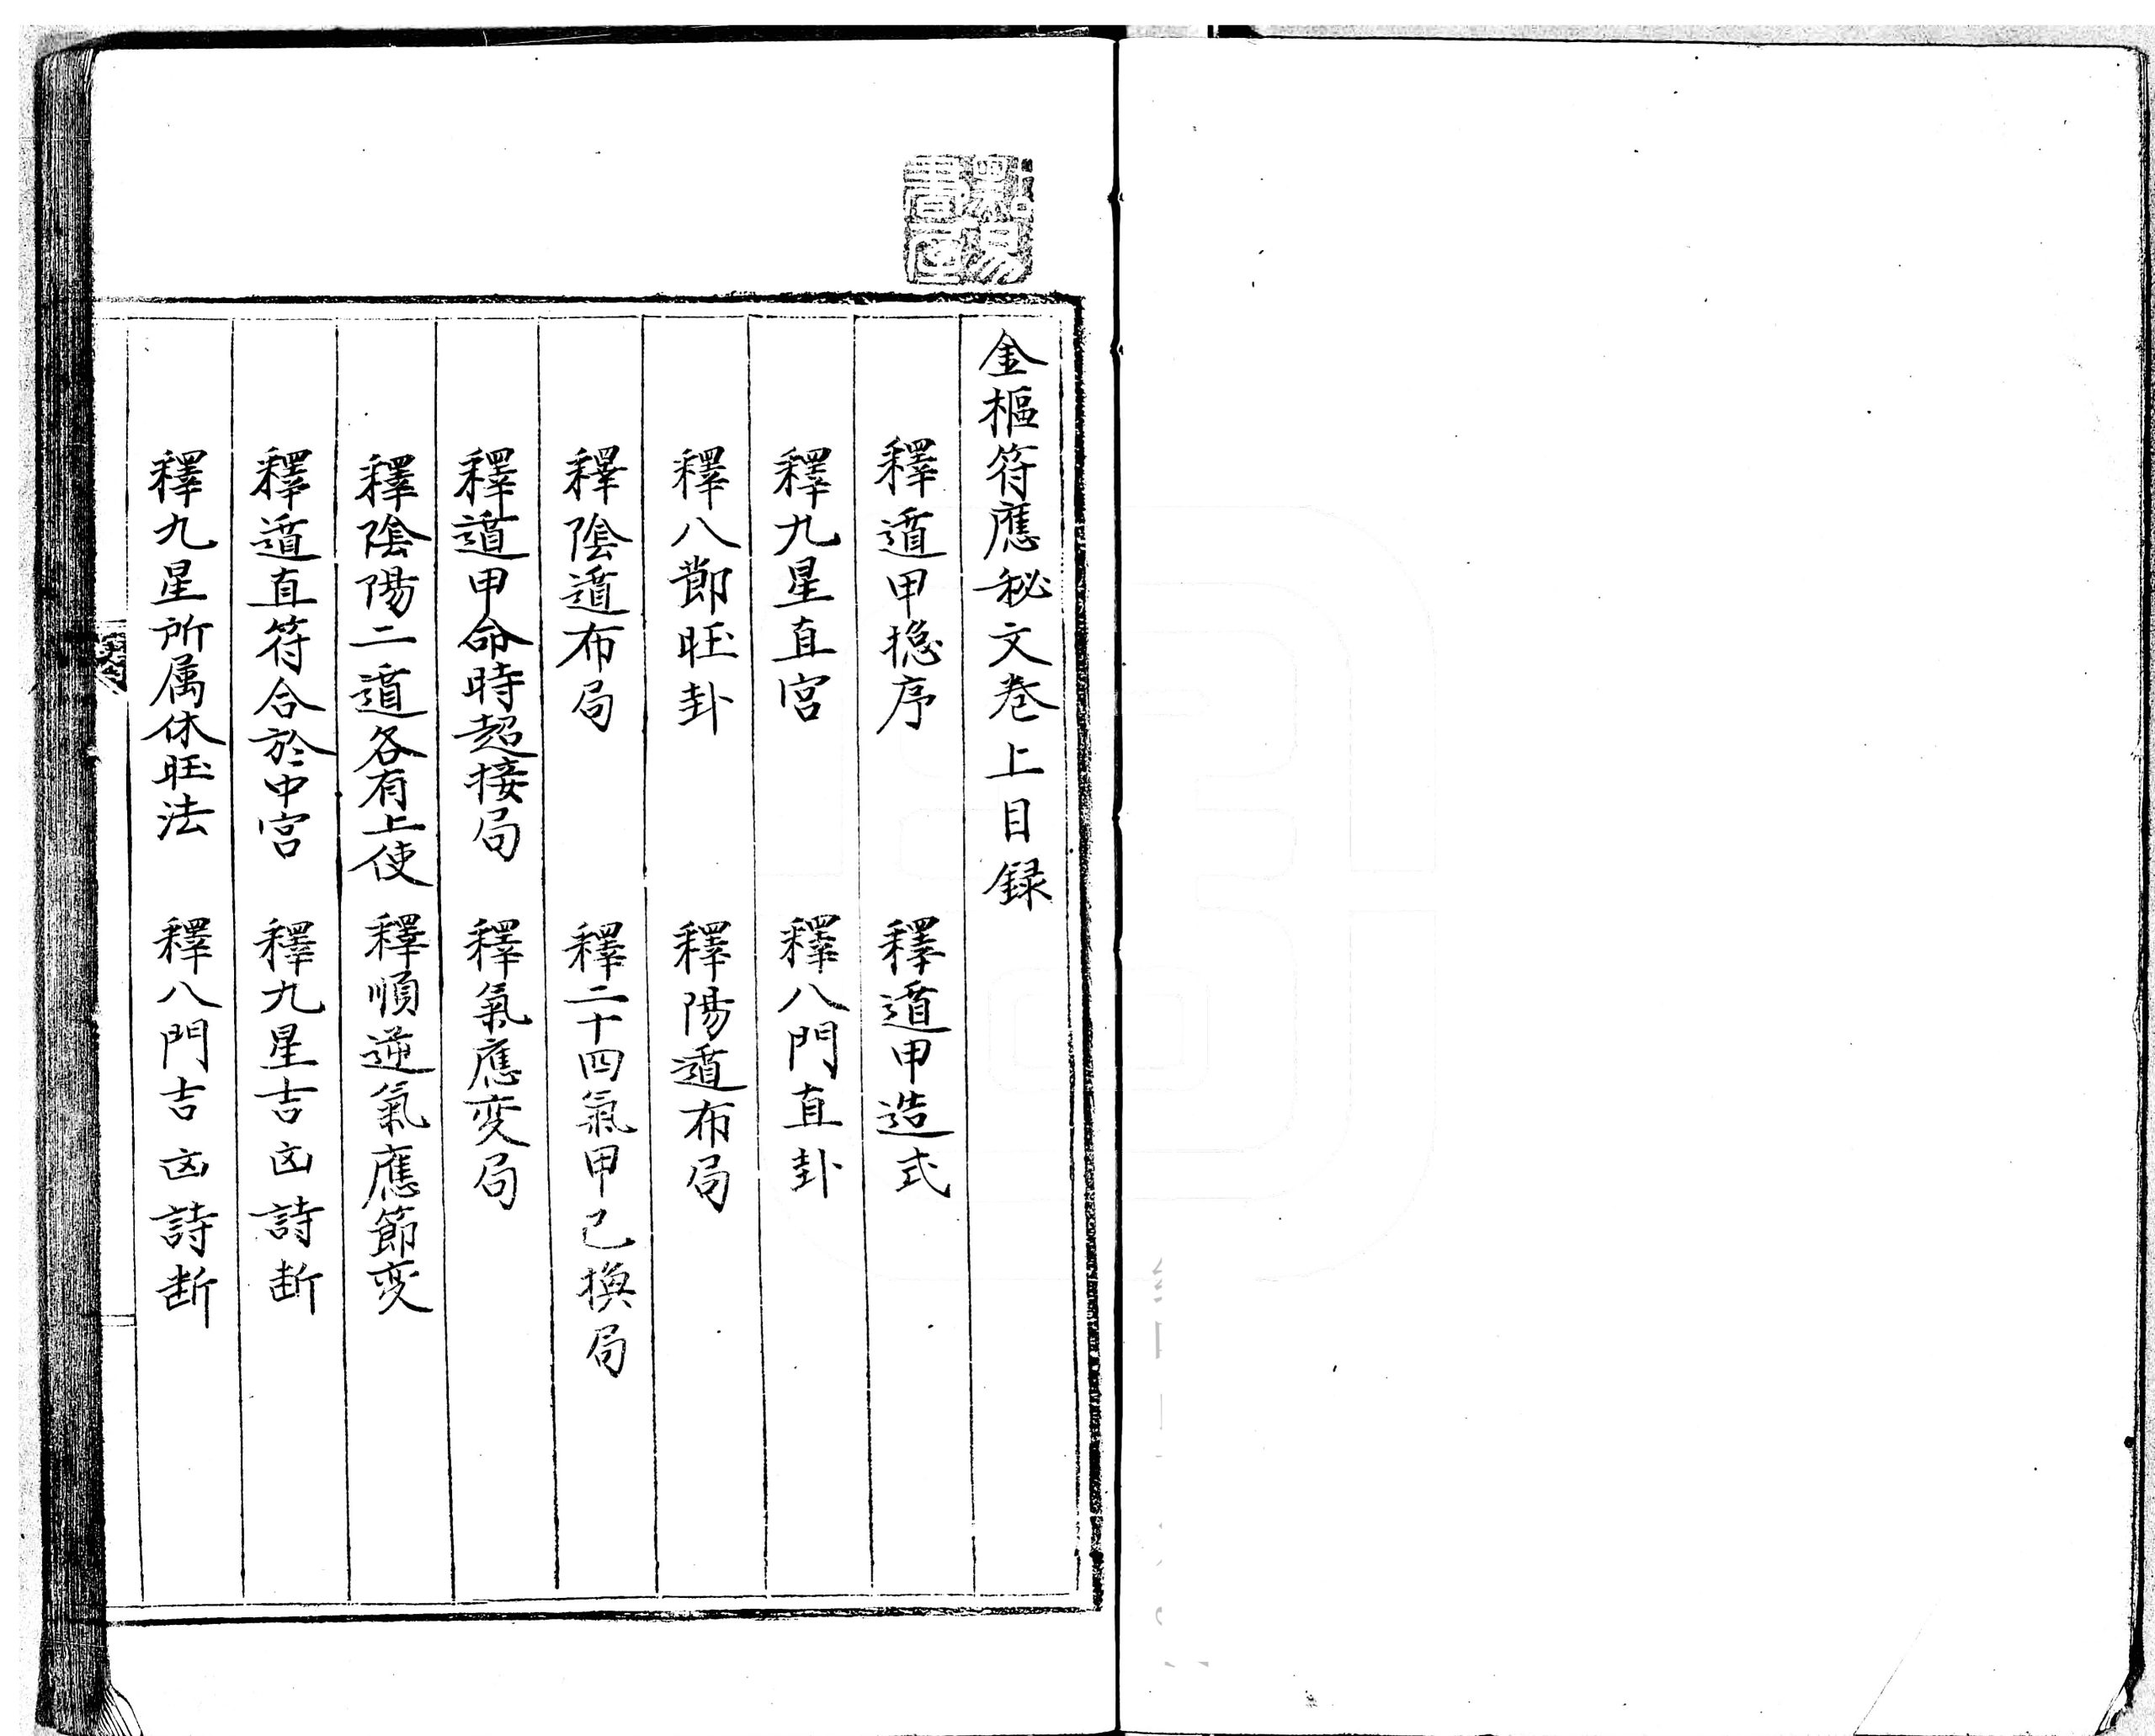 點易
書屋
金樞符應秘文卷上目録
釋遁甲揔序　釋遁甲造式
釋九星直宮　釋八門直卦
釋八節旺卦　釋陽遁布局
釋陰遁布局　釋二十四氣甲己換局
釋遁甲命時超接局　釋氣應变局
釋陰陽二遁各有上使　釋順逆氣應節变
釋遁直符合於中宮　釋九星吉凶詩断
釋九星所属休旺法　釋八門吉凶詩断